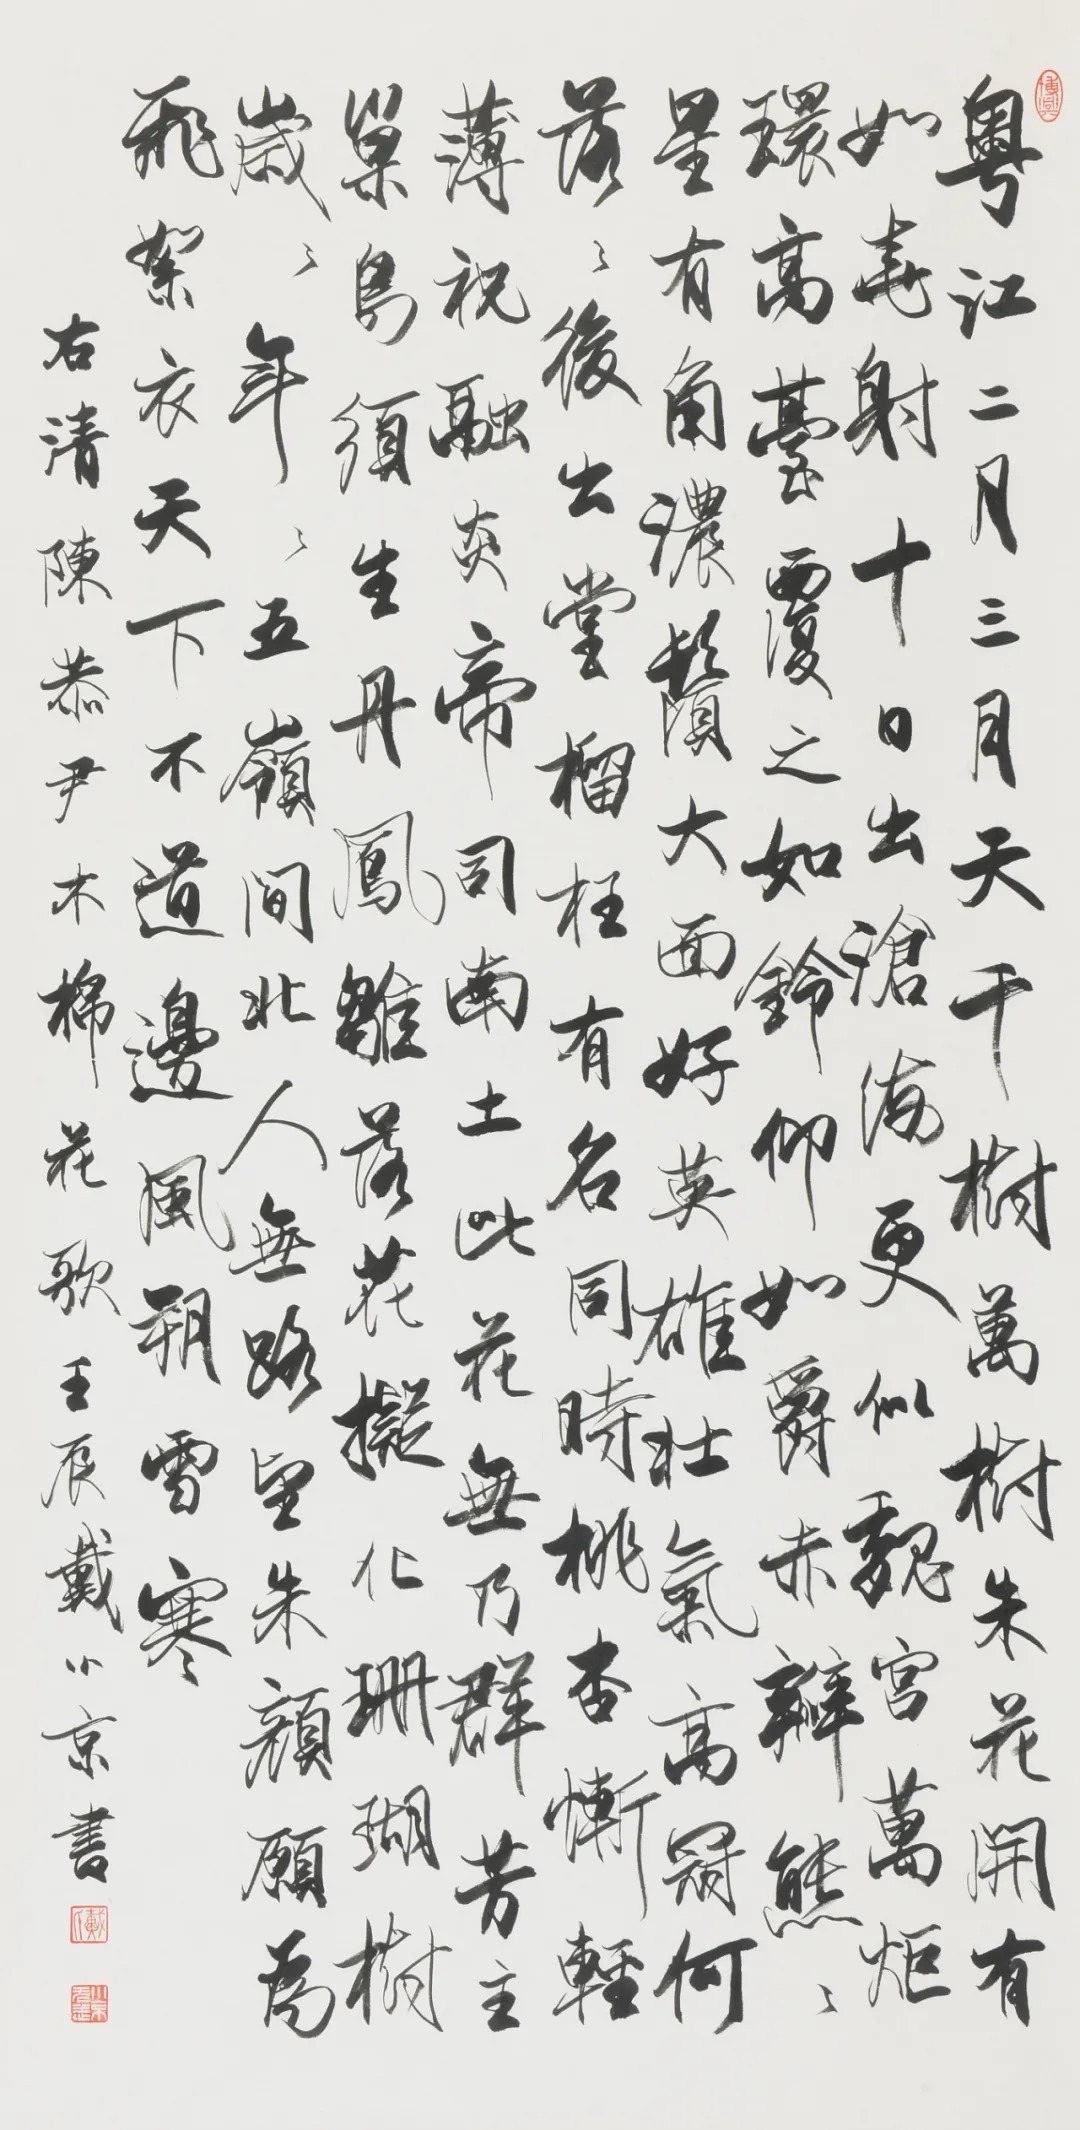 粤江二月三月天千樹萬樹朱花開有
如堯射十日出滄海更似魏宮萬炬
環高臺覆之如鈴仰如爵赤瓣熊〻
星有角濃鬚大面好英雄壯氣高冠何
落〻後出堂榴枉有名同時桃杏慚輕
薄祝融炎帝司南土此花無乃群芳主
巢鳥須生丹鳳雛落花擬化珊瑚樹
歲〻年〻五嶺間北人無路望朱顏願為
飛絮衣天下不道邊風朔雪寒
右清陳恭尹木棉花歌壬辰戴小京書